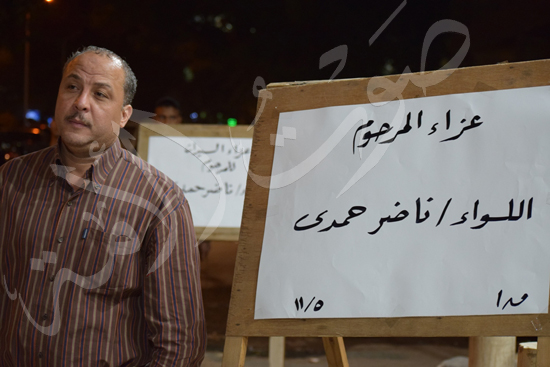 عزاء المرحوم
اللواء / ناضر حمدى
١١/٥
عزاء السيدات
للمرحوم
/ ناضر حمدى